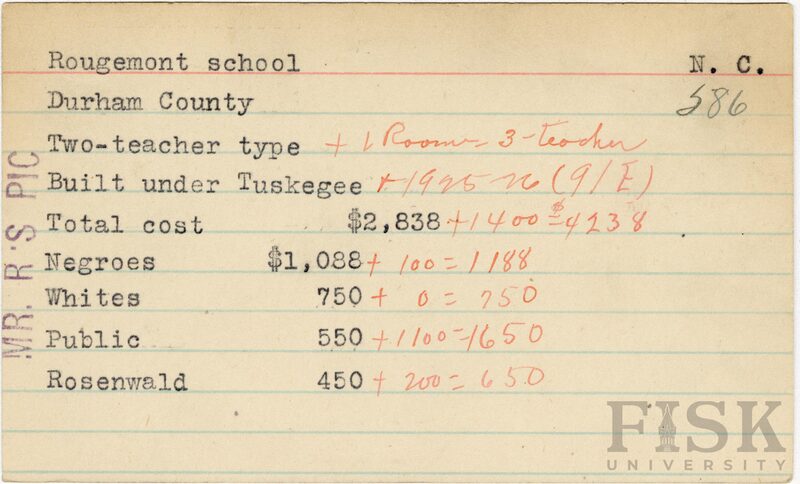 Rougemont school N. C.
Durham County 586
Two-teacher type + 1 Room = 3-teacher
Built under Tuskegee + 1925-26 (9/E)
Total cost $2,838 + 1400 = $4238
Negroes $1,088 + 100 = 1188
Whites 750 + 0 = 750
Public 550 + 1100 = 1650
Rosenwald 450 + 200 = 650
MR. R'S PIC
FISK
UNIVERSITY